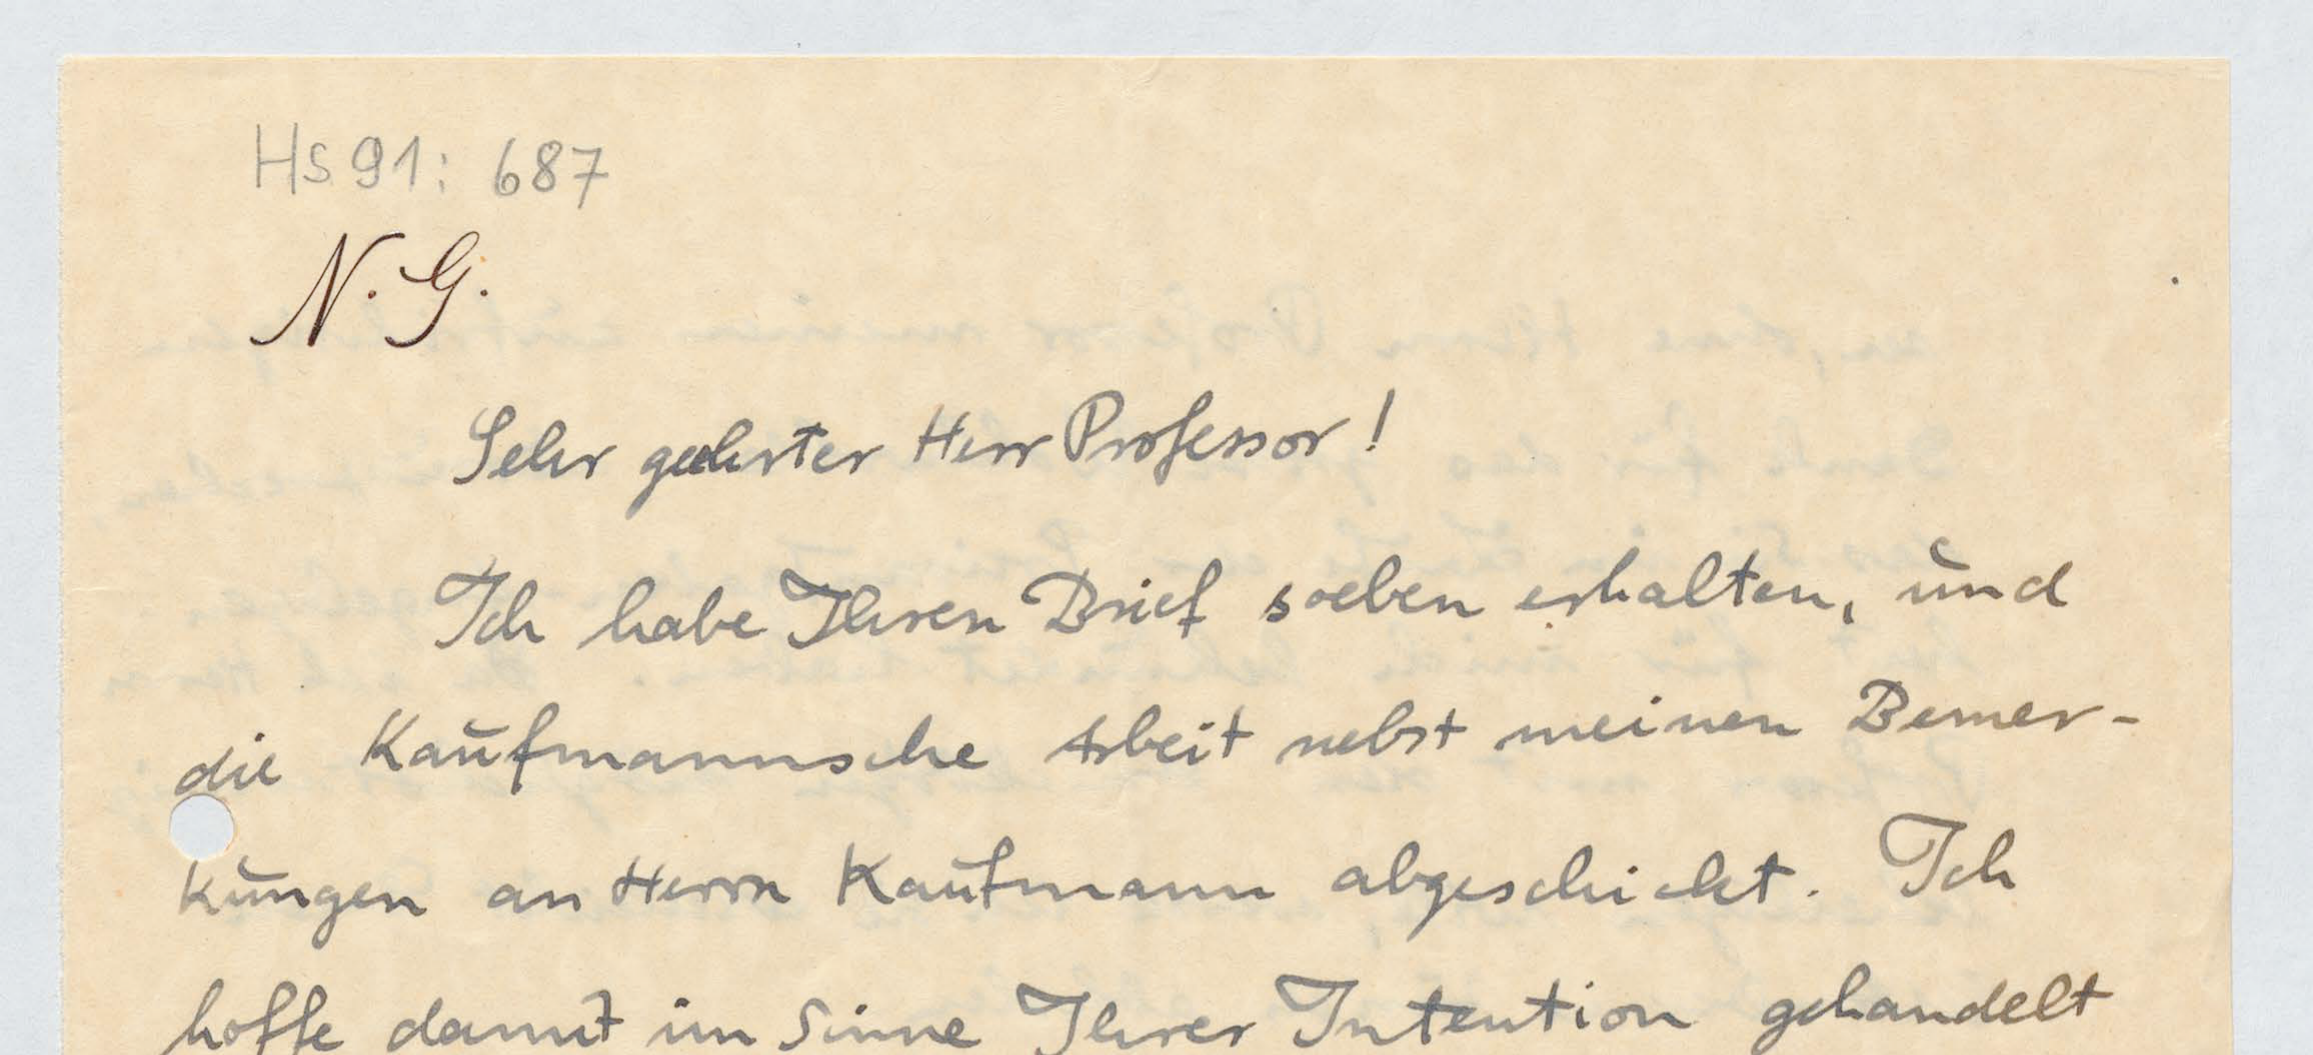 Hs 91: 687
N. G.
Sehr geehrter Herr Professor!
Ich habe Ihren Brief soeben erhalten, und
die Kaufmannsche Arbeit nebst meinen Bemer-
kungen an Herrn Kaufmann abgeschickt. Ich
hoffe damit im Sinne Ihrer Intention gehandelt